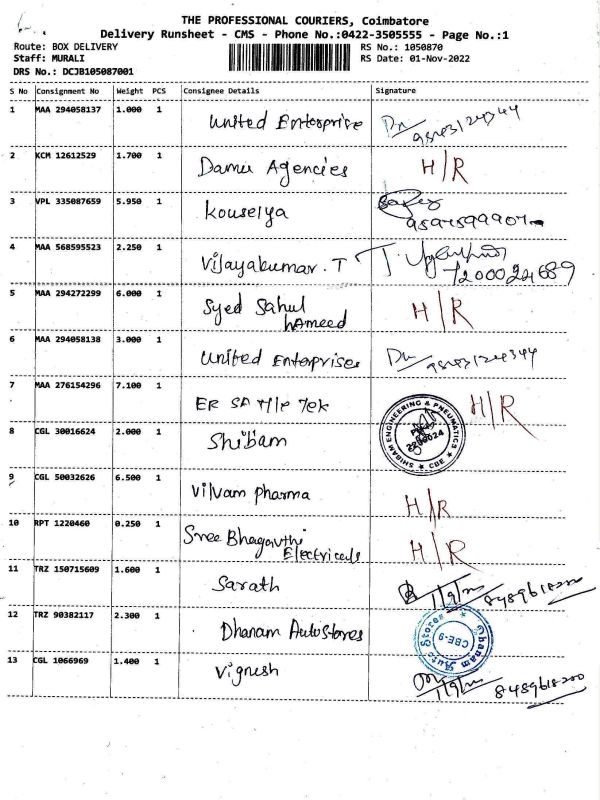 THE PROFESSIONAL COURIERS, Coimbatore
Delivery Runsheet - CMS - Phone No.:0422-3505555 - Page No.:1
Route: BOX DELIVERY RS No.: 1050870
Staff: MURALI RS Date: 01-Nov-2022
DRS No.: DCJB105087001
S No Consignment No Weight PCS Consignee Details Signature
1 MAA 294058137 1.000 1 United Enterprise 9843124344
2 KCM 12612529 1.700 1 Damu Agencies H/R
3 VPL 335087659 5.950 1 Kouselya
4 MAA 568595523 2.250 1 Vijayakumar. T
7200024689
5 MAA 294272299 6.000 1 Syed Sahul H/R
hAmeed
6 MAA 294058138 3.000 1 United Enterprises 9843124344
7 MAA 276154296 7.100 1 H/R
8 CGL 30016624 2.000 1 Shibam SHIBAM ENGINEERING & PNEUMATICS ★ CBE ★
9 CGL 50032626 6.500 1 Vilvam pharma H/R
10 RPT 1220460 0.250 1 Sree Bhagavthi H/R
Electricals
11 TRZ 150715609 1.600 1 Sarath 8489618200
12 TRZ 90382117 2.300 1 Dhanam AutoStores Dhanam Auto Stores ★ CBE-9
13 CGL 1066969 1.400 1 Vignesh 8489618200